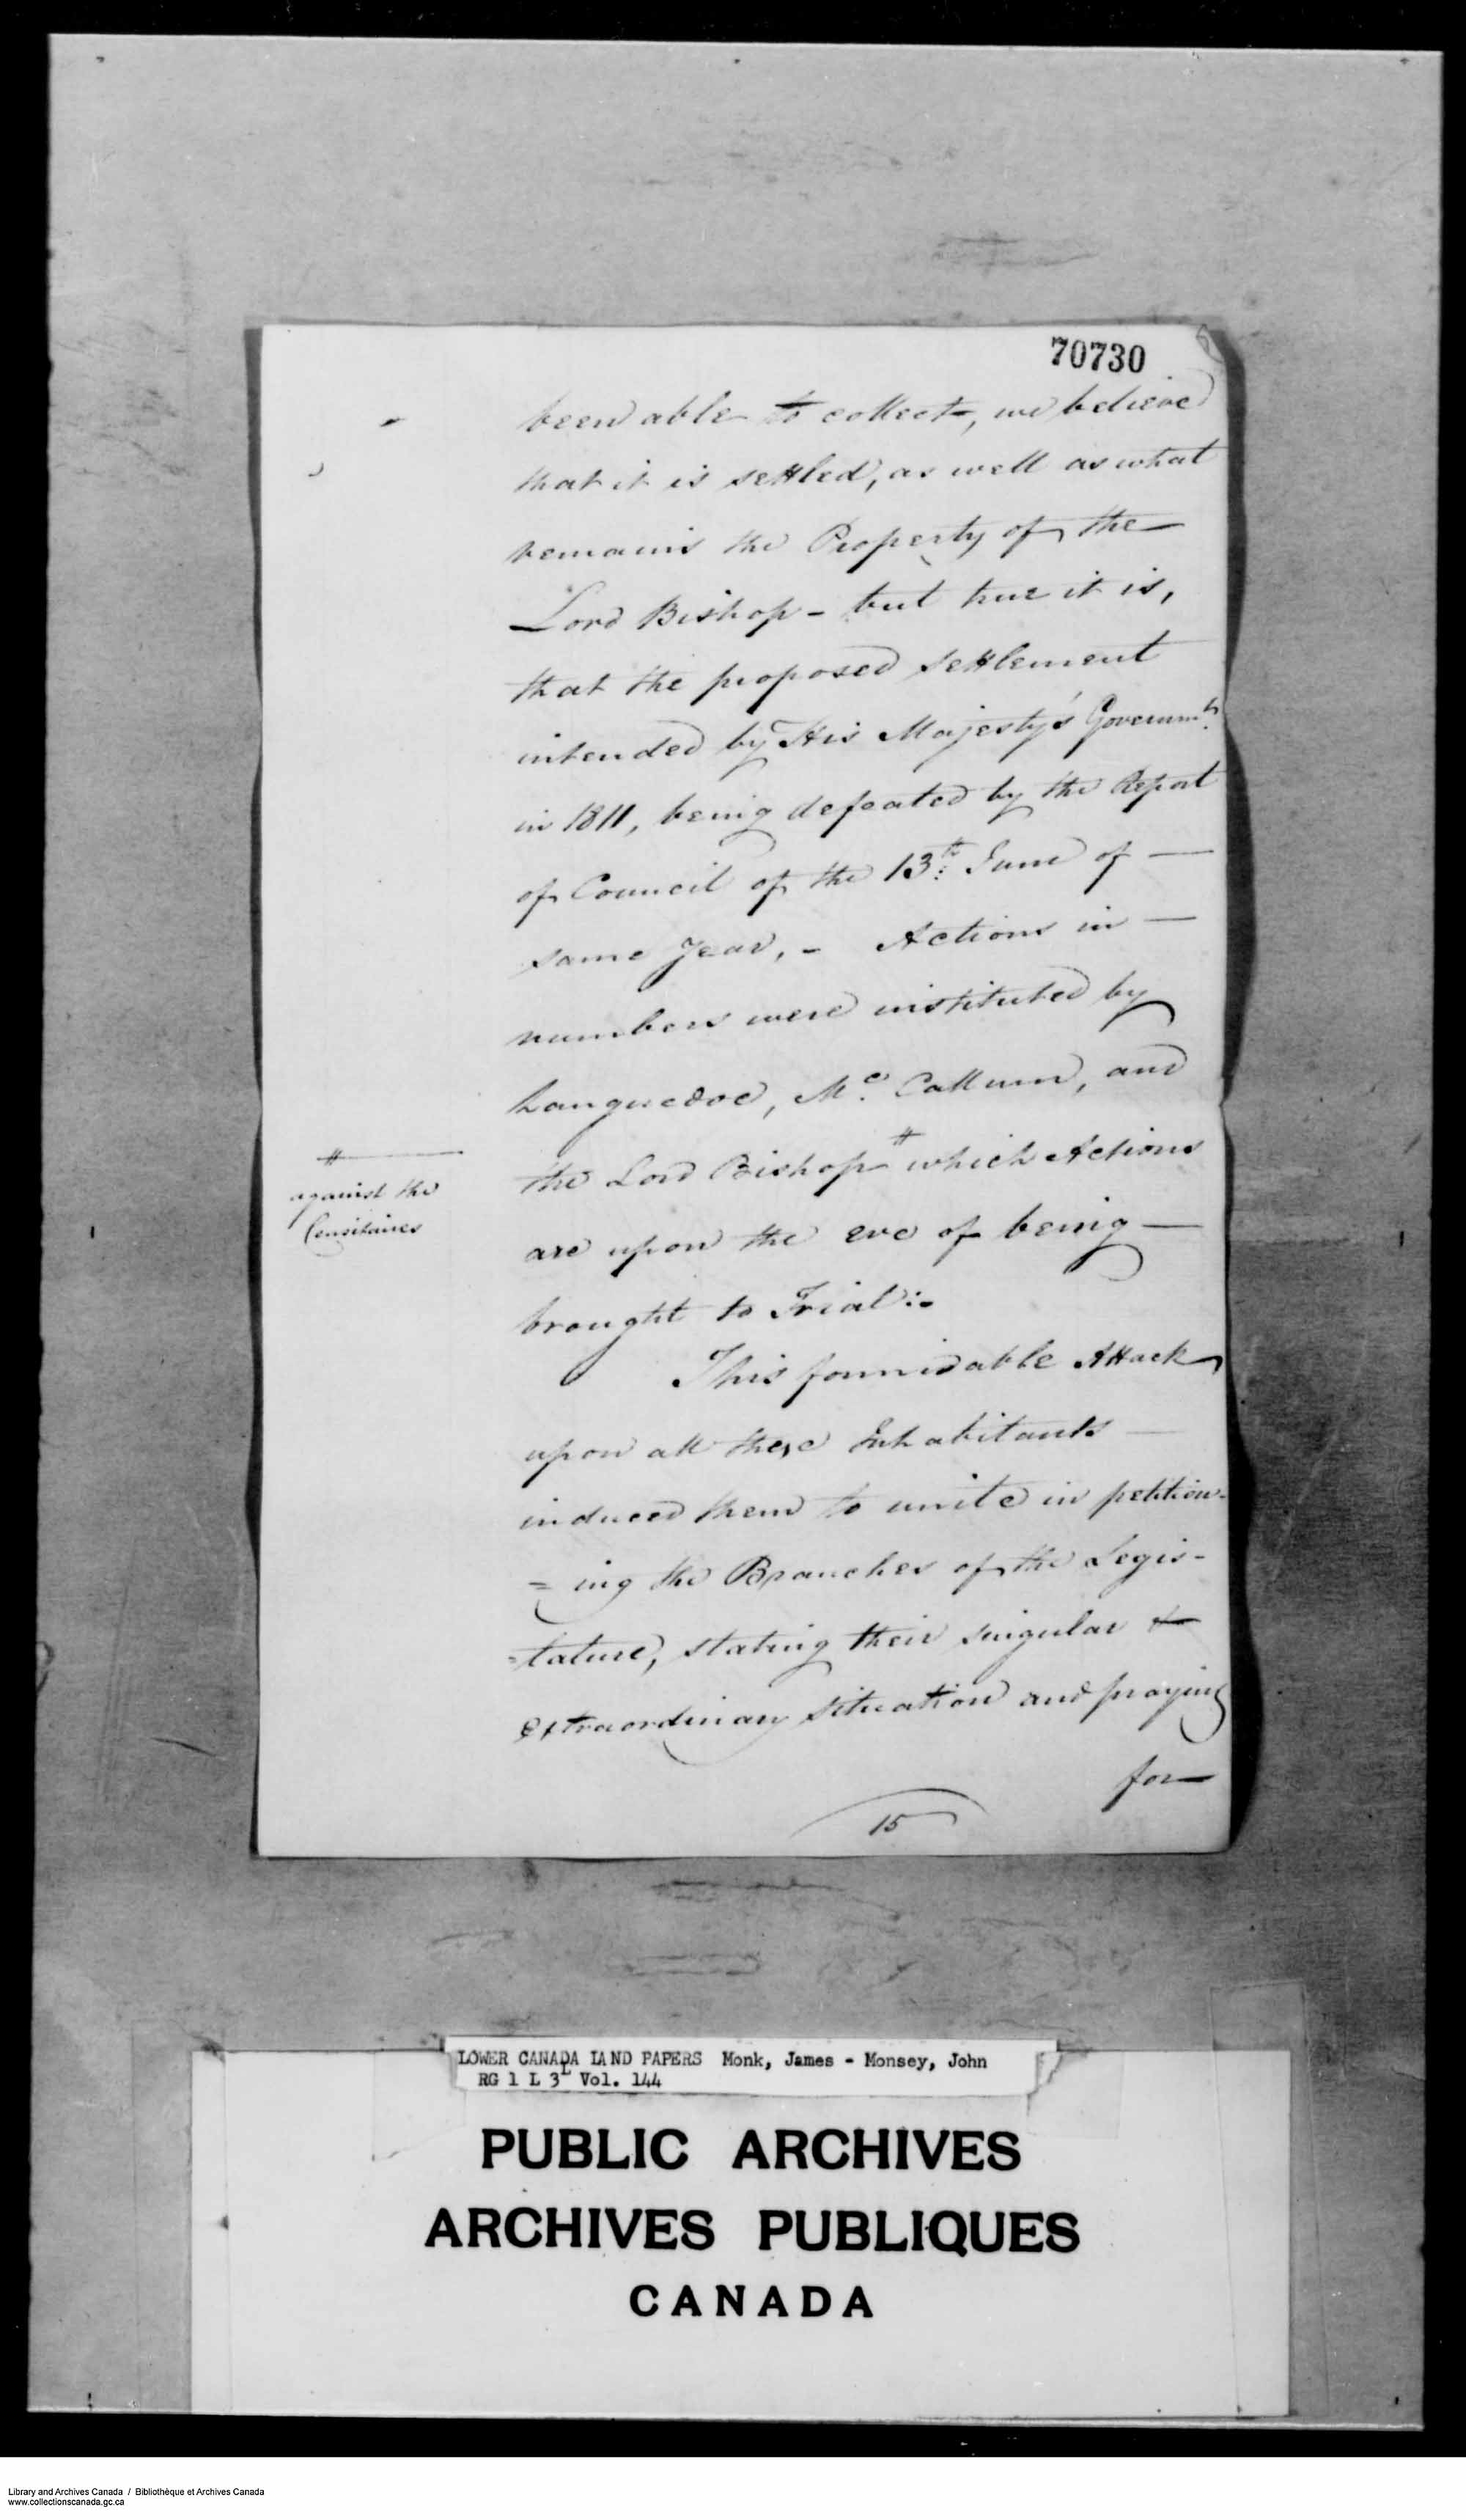 70730
been able to collect, we believe
that it is settled, as well as what
remains the Property of the —
Lord Bishop - but true it is,
that the proposed settlement
intended by His Majesty's Governmt.
in 1811, being defeated by the Report
of Council of the 13th: June of —
same Year, - Actions in —
numbers were instituted by
Languedoc, Mc. Callum, and
the Lord Bishop # which Actions
# 
against the
Censitaires
are upon the eve of being —
brought to Trial:-
This formidable Attack
upon all these Inhabitants —
induced them to unite in petition-
= ing the Branches of the Legis-
=lature, stating their singular &
extraordinary situation and praying
for —
15
LOWER CANADA LAND PAPERS Monk, James - Monsey, John
RG 1 L 3L Vol. 144
PUBLIC ARCHIVES
ARCHIVES PUBLIQUES
CANADA
Library and Archives Canada / Bibliothèque et Archives Canada
www.collectionscanada.gc.ca